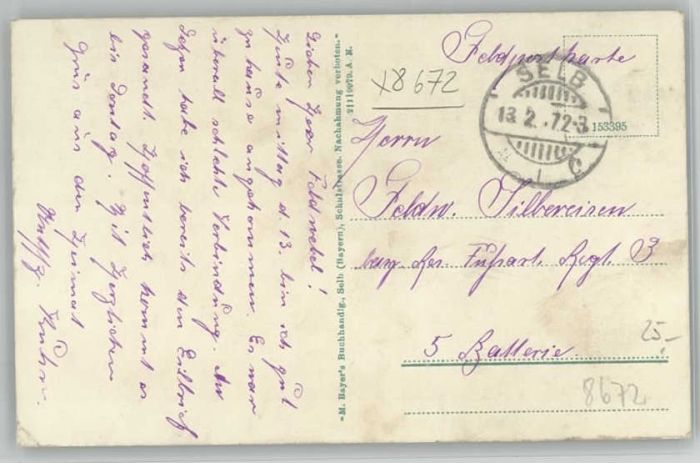 Lieber Herr Feldwebel!
Heute mittag d. 13. bin ich gut
zu hause angekommen. Es war
überall schlechte Verbindung. An
habe ich bereits den Eilbrief
gesandt. Hoffentlich kommt er
bis Dontag. Mit Herzlichen
Grüss aus der Heimat
"M. Bayer's Buchhandlg., Selb (Bayern), Schulstrasse. Nachahmung verboten."
21119079. A. N.
Feldpostkarte
SELB
13.2.17.2-3
C
153395
X8672
Herrn
Feldw. Silbereisen
bay. Res. Fußart. Regt. 3
5 Batterie.
25.-
8672